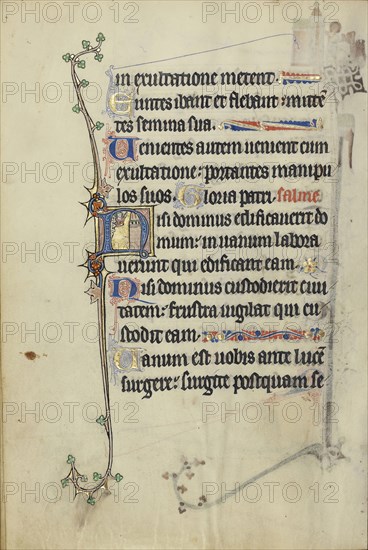 in exultatione metent.
Euntes ibant et flebant: mitten
tes semina sua.
Uenientes autem uenient cum
exultatione: portantes manipu
los suos. Gloria patri. salme
Nisi dominus edificauerit do
mum: in uanum labora
uerunt qui edificant eam.
Nisi dominus custodierit ciui
tatem: frustra uigilat qui cu
stodit eam.
Uanum est uobis ante lucẽ
surgere: surgite postquam se
PHOTO12